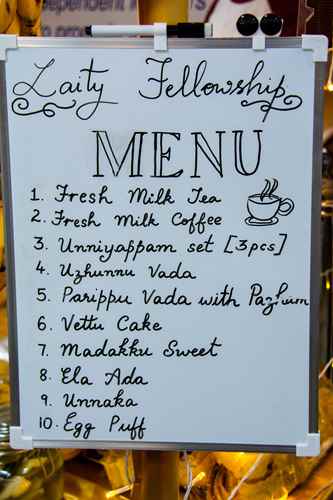 Laity Fellowship
MENU
1. Fresh Milk Tea
2. Fresh Milk Coffee
3. Unniyappam set [3pcs]
4. Uzhunnu Vada
5. Parippu Vada with Pazhum
6. Vettu Cake
7. Madakku Sweet
8. Ela Ada
9. Unnaka
10. Egg Puff